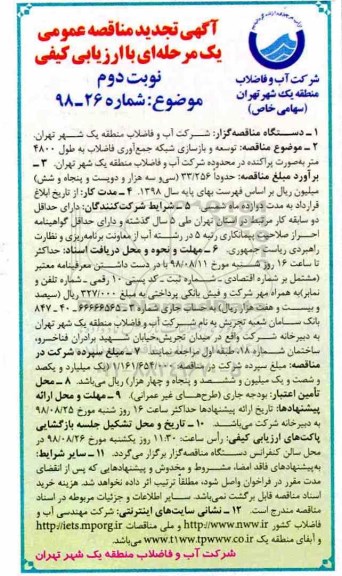 آگهی تجدید مناقصه عمومی
یک مرحله‌ای با ارزیابی کیفی
نوبت دوم
موضوع: شماره ۲۶-۹۸
شرکت آب و فاضلاب
منطقه یک شهر تهران
(سهامی خاص)
۱ ـ دستگاه مناقصه‌گزار: شرکت آب و فاضلاب منطقه یک شهر تهران.
۲ ـ موضوع مناقصه: توسعه و بازسازی شبکه جمع‌آوری فاضلاب به طول ۴۸۰۰
متر به‌صورت پراکنده در محدوده شرکت آب و فاضلاب منطقه یک شهر تهران. ۳ ـ
برآورد مبلغ مناقصه: حدوداً ۳۳/۲۵۶ (سی و سه هزار و دویست و پنجاه و شش)
میلیون ریال بر اساس فهرست بهای پایه سال ۱۳۹۸. ۴ ـ مدت کار: از تاریخ ابلاغ
قرارداد به مدت دوازده ماه شمسی. ۵ ـ شرایط شرکت‌کنندگان: دارای حداقل
دو سابقه کار مرتبط در استان تهران طی ۵ سال گذشته و دارای حداقل گواهینامه
احراز صلاحیت پیمانکاری رتبه ۵ در رشته آب از معاونت برنامه‌ریزی و نظارت
راهبردی ریاست جمهوری. ۶ ـ مهلت و نحوه و محل دریافت اسناد: حداکثر
تا ساعت ۱۶ روز شنبه مورخ ۹۸/۰۸/۱۱ با در دست داشتن معرفینامه معتبر
(مشتمل بر شماره اقتصادی ـ شماره ثبت ـ کد پستی ۱۰ رقمی ـ شماره تلفن و
نمابر) به همراه مهر شرکت و فیش بانکی پرداختی به مبلغ ۳۲۷/۰۰۰ ریال (سیصد
و بیست و هفت هزار ریال) به حساب جاری شماره ۳ ـ ۶۶۶۶۶۵۶۵ ـ ۴۰ ـ ۸۴۷
بانک سامان شعبه تجریش به نام شرکت آب و فاضلاب منطقه یک شهر تهران
به دبیرخانه شرکت واقع در میدان تجریش، خیابان شهید برادران فتاخسرو،
ساختمان شماره ۱۸، طبقه اول مراجعه نمایند. ۷ ـ مبلغ سپرده شرکت در
مناقصه: مبلغ سپرده شرکت در مناقصه ۱/۱۶۱/۶۵۴/۰۰۰ (یک میلیارد و یکصد
و شصت و یک میلیون و ششصد و پنجاه و چهار هزار) ریال می‌باشد. ۸ ـ محل
تأمین اعتبار: بودجه جاری (طرح‌های غیر عمرانی). ۹ ـ مهلت و محل ارائه
پیشنهادها: تاریخ ارائه پیشنهادها حداکثر ساعت ۱۶ روز شنبه مورخ ۹۸/۰۸/۲۵
به دبیرخانه شرکت می‌باشد. ۱۰ ـ تاریخ و محل تشکیل جلسه بازگشایی
پاکت‌های ارزیابی کیفی: رأس ساعت: ۱۱:۳۰ روز یکشنبه مورخ ۹۸/۰۸/۲۶ در
محل سالن کنفرانس دستگاه مناقصه‌گزار برگزار می‌گردد. ۱۱ ـ سایر شرایط:
به پیشنهادهای فاقد امضاء، مشروط و مخدوش و پیشنهادهایی که پس از انقضای
مدت مقرر در فراخوان واصل شود، مطلقاً ترتیب اثر داده نخواهد شد. هزینه خرید
اسناد مناقصه قابل برگشت نمی‌باشد. سایر اطلاعات و جزئیات مربوطه در اسناد
مناقصه مندرج است. ۱۲ ـ نشانی سایت‌های اینترنتی: شرکت مهندسی آب و
فاضلاب کشور http://www.nww.ir و ملی مناقصات http://iets.mporg.ir
و آبفای منطقه یک www.t1ww.tpww.co.ir می‌باشد.
شرکت آب و فاضلاب منطقه یک شهر تهران